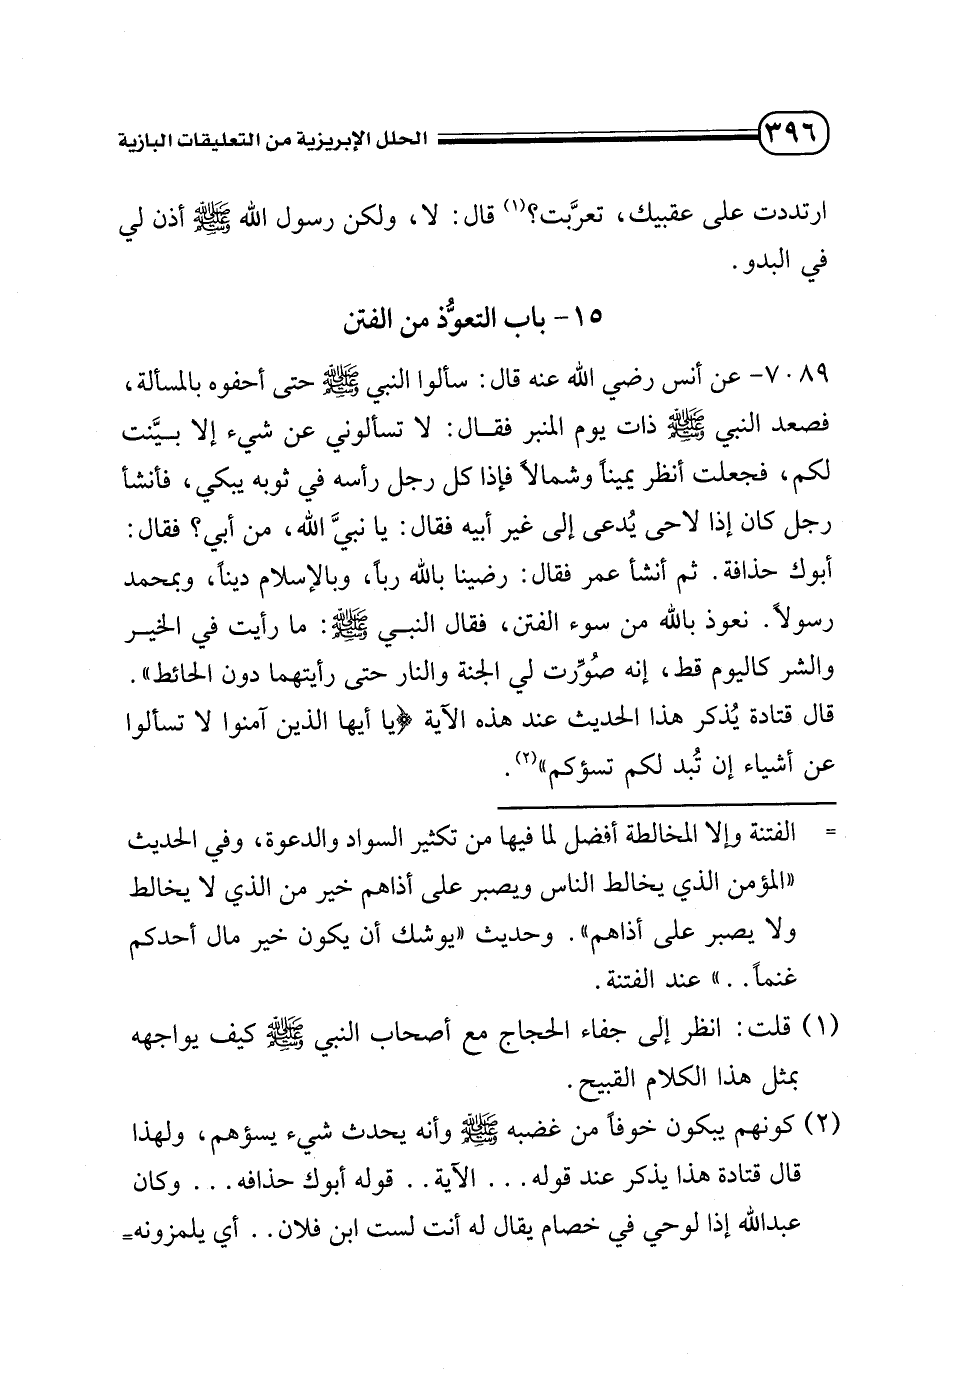 ٣٩٦ الحلل الإبريزية من التعليقات البازية
ارتددت على عقبيك، تعرَّبت؟(١) قال: لا، ولكن رسول الله ﷺ أذن لي
في البدو.
١٥- باب التعوُّذ من الفتن
٧٠٨٩- عن أنس رضي الله عنه قال: سألوا النبي ﷺ حتى أحفوه بالمسألة،
فصعد النبي ﷺ ذات يوم المنبر فقال: لا تسألوني عن شيء إلا بيَّنت
لكم، فجعلت أنظر يميناً وشمالاً فإذا كل رجل رأسه في ثوبه يبكي، فأنشأ
رجل كان إذا لاحى يُدعى إلى غير أبيه فقال: يا نبيَّ الله، من أبي؟ فقال:
أبوك حذافة. ثم أنشأ عمر فقال: رضينا بالله رباً، وبالإسلام ديناً، وبمحمد
رسولاً. نعوذ بالله من سوء الفتن، فقال النبي ﷺ: ما رأيت في الخير
والشر كاليوم قط، إنه صُوِّرت لي الجنة والنار حتى رأيتهما دون الحائط».
قال قتادة يُذكر هذا الحديث عند هذه الآية ﴿يا أيها الذين آمنوا لا تسألوا
عن أشياء إن تُبد لكم تسؤكم»(٢).
= الفتنة وإلا المخالطة أفضل لما فيها من تكثير السواد والدعوة، وفي الحديث
«المؤمن الذي يخالط الناس ويصبر على أذاهم خير من الذي لا يخالط
ولا يصبر على أذاهم». وحديث «يوشك أن يكون خير مال أحدكم
غنماً..» عند الفتنة.
(١) قلت: انظر إلى جفاء الحجاج مع أصحاب النبي ﷺ كيف يواجهه
بمثل هذا الكلام القبيح.
(٢) كونهم يبكون خوفاً من غضبه ﷺ وأنه يحدث شيء يسؤهم، ولهذا
قال قتادة هذا يذكر عند قوله... الآية.. قوله أبوك حذافه... وكان
عبدالله إذا لوحي في خصام يقال له أنت لست ابن فلان.. أي يلمزونه=